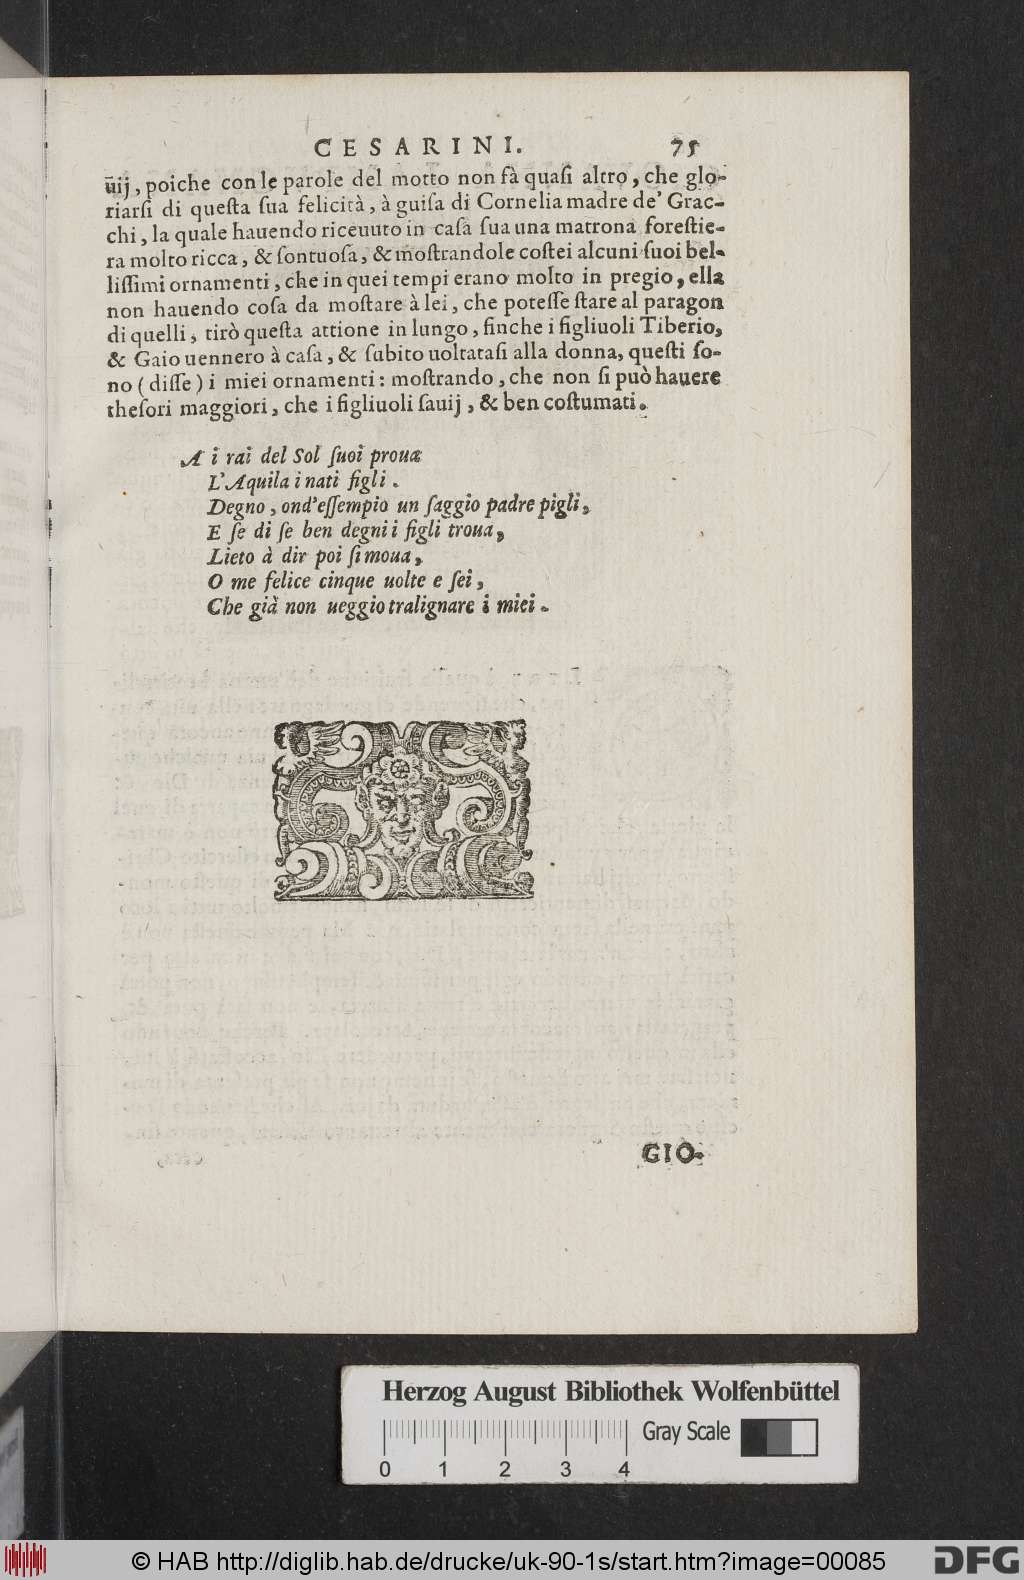 CESARINI. 75
uij, poiche con le parole del motto non fà quaſi altro, che glo-
riarſi di queſta ſua felicità, à guiſa di Cornelia madre de' Grac-
chi, la quale hauendo riceuuto in caſa ſua una matrona foreſtie-
ra molto ricca, & ſontuoſa, & moſtrandole coſtei alcuni ſuoi bel-
liſſimi ornamenti, che in quei tempi erano molto in pregio, ella
non hauendo coſa da moſtare à lei, che poteſſe ſtare al paragon
di quelli, tirò queſta attione in lungo, finche i figliuoli Tiberio,
& Gaio uennero à caſa, & ſubito uoltataſi alla donna, queſti ſo-
no (diſſe) i miei ornamenti: moſtrando, che non ſi può hauere
theſori maggiori, che i figliuoli ſauij, & ben coſtumati.
A i rai del Sol ſuoi proua
L'Aquila i nati figli.
Degno, ond'eſſempio un ſaggio padre pigli,
E ſe di ſe ben degni i figli troua,
Lieto à dir poi ſi moua,
O me felice cinque uolte e ſei,
Che già non ueggio tralignare i miei.
GIO-
Herzog August Bibliothek Wolfenbüttel
Gray Scale
0 1 2 3 4
© HAB http://diglib.hab.de/drucke/uk-90-1s/start.htm?image=00085
DFG